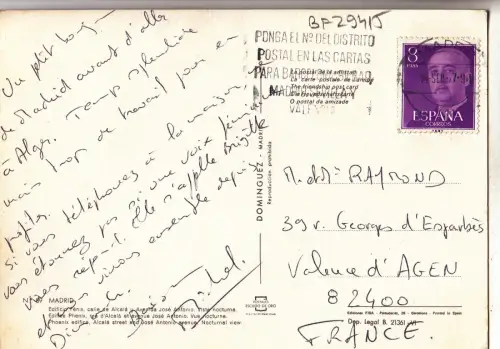 BF29415
PONGA EL Nº DEL DISTRITO
POSTAL EN LAS CARTAS
PARA
MAD
La postal de la amistad
La carte postale de l'amitié
The friendship post card
Die Freundschaftskarte
O postal de amizade
3
PTAS
ESPAÑA
CORREOS
Un p'tit bonjour
de Madrid avant d'aller
à Alger. Temps splendide
mais trop de travail pour en
profiter.
Si vous téléphonez à la maison, ne
vous étonnez pas si une voix féminine
vous répond. Elle s'appelle Brigitte
et nous vivons ensemble depuis
Dimanche.
Michel.
DOMINGUEZ - MADRID
Reproducción prohibida
M. et Mme RAYMOND
39 v. Georges d'Esparbès
Valence d'AGEN
82400
FRANCE
MADRID
Edificio Fénix, calle de Alcalá y Avenida José Antonio. Vista nocturna.
Edifice Phenix, rue d'Alcalá et Avenue José Antonio. Vue nocturne.
Phoenix edifice. Alcalá street and José Antonio avenue. Nocturnal view
ESCUDO DE ORO
Dep. Legal B. 21361